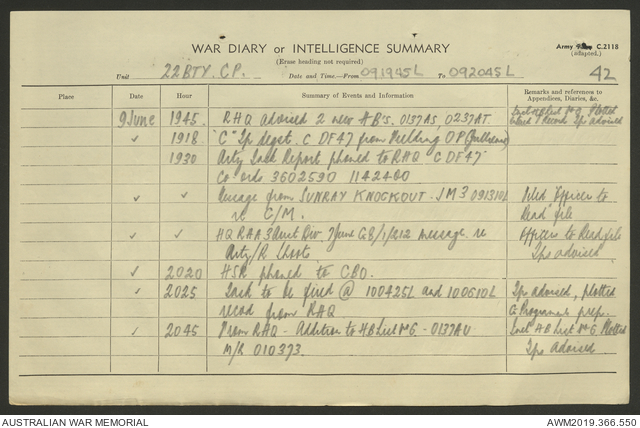 WAR DIARY or INTELLIGENCE SUMMARY
(Erase heading not required)
Army Form C.2118
(adapted.)
Unit 22 BTY. CP. Date and Time.—From 091945L To 092045L 42
Place Date Hour Summary of Events and Information Remarks and references to Appendices, Diaries, &c.
9 June 1945 RHQ advised 2 new HB's. 0137AS, 0237AT Plotted
Tps advised
✓ 1918 "C" Tp regst. C DF47 from OP
1930 Arty Task Report phoned to RHQ C DF47
Co ords 3602590 1142400
✓ ✓ Message from SUNRAY KNOCKOUT. JM3 091310L Filed 'Officer to
re C/M. Read' file
✓ ✓ HQ RAA 3 Aust Div. 7 June G8/1/212 message re Officers to Read file
Arty/R Shoots Tps advised
✓ 2020 HSR phoned to CBO.
✓ 2025 Task to be fired @ 100425L and 100610L Tps advised, plotted
record from RHQ & Programme prep.
✓ 2045 From RHQ - Addition to HB List No 6 - 0137AU HB List No 6 Plotted
M/R 010373 Tps Advised
AUSTRALIAN WAR MEMORIAL
AWM2019.366.550